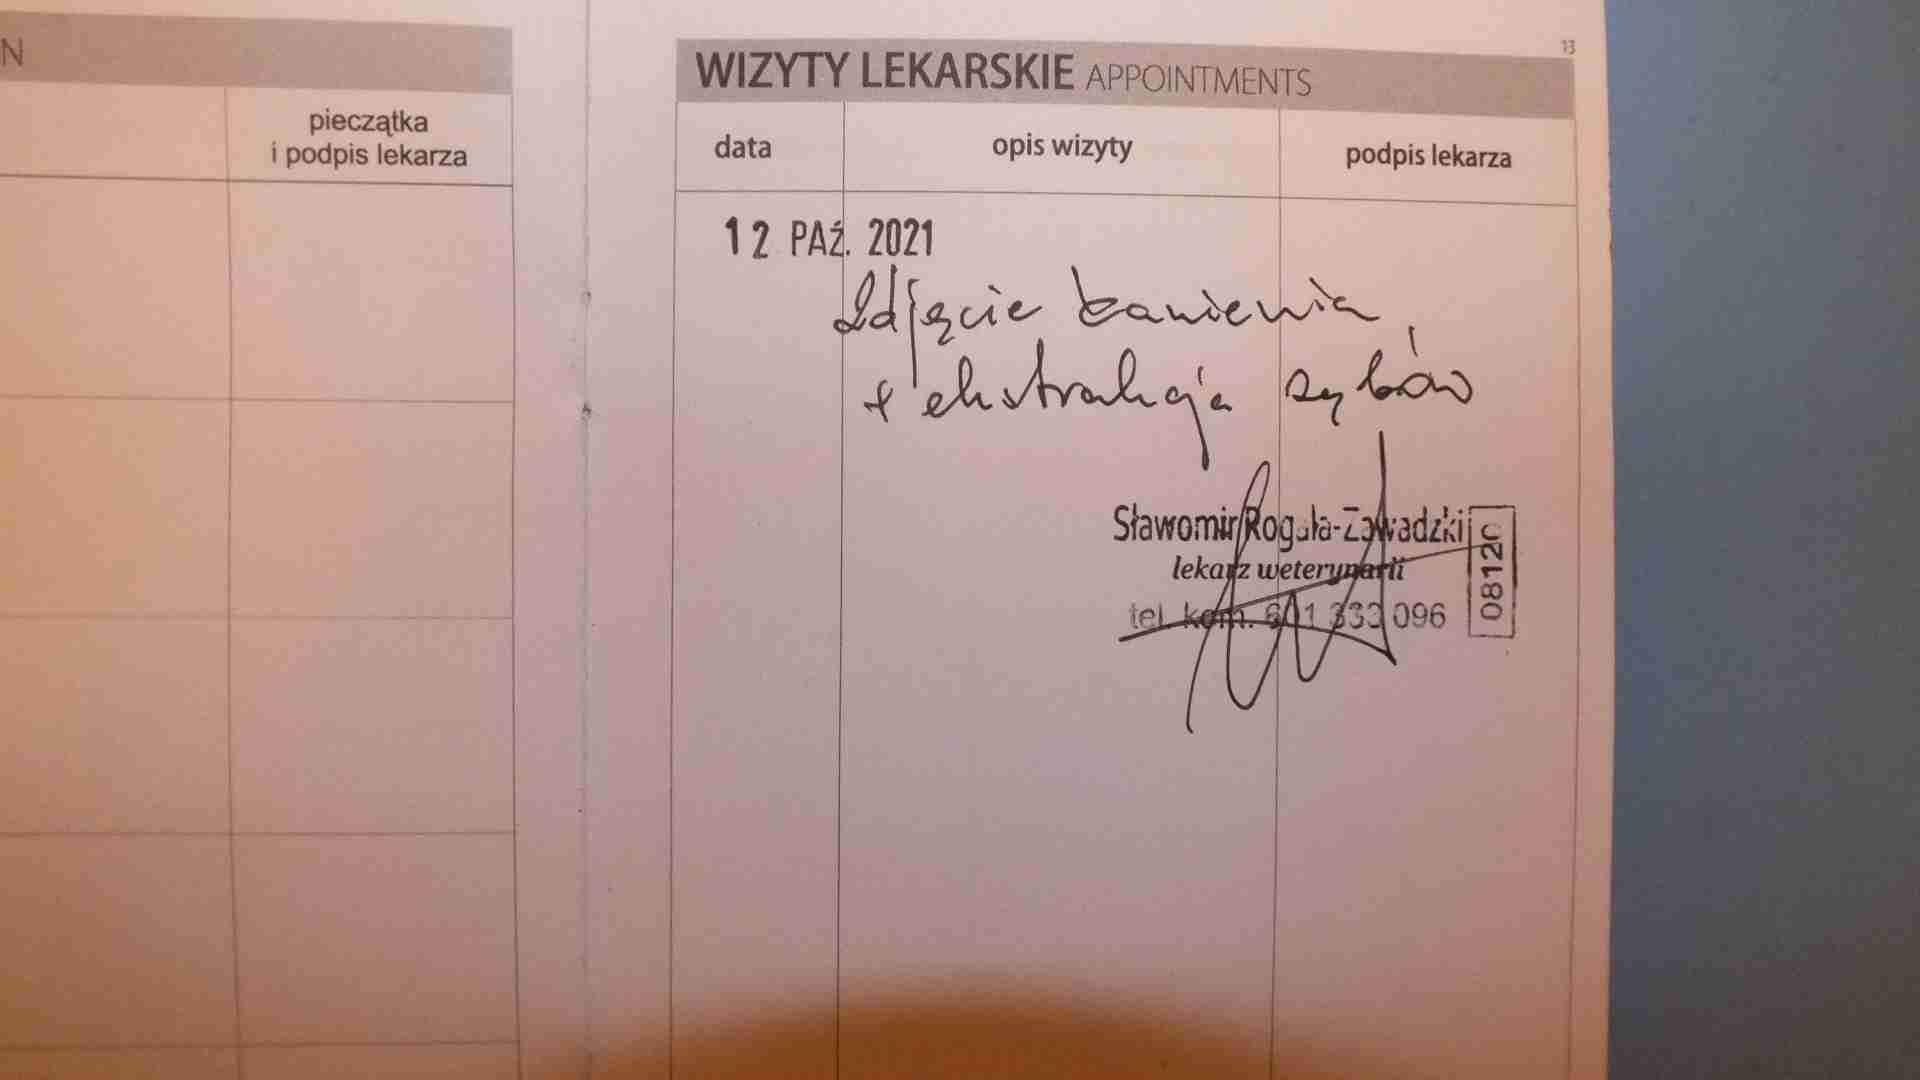 N
pieczątka
i podpis lekarza
13
WIZYTY LEKARSKIE APPOINTMENTS
data opis wizyty podpis lekarza
12 PAŹ. 2021
Zdjęcie kamienia
+ ekstrakcja zębów
Sławomir Rogala-Zawadzki
lekarz weterynarii
tel. kom. 601 333 096
08120